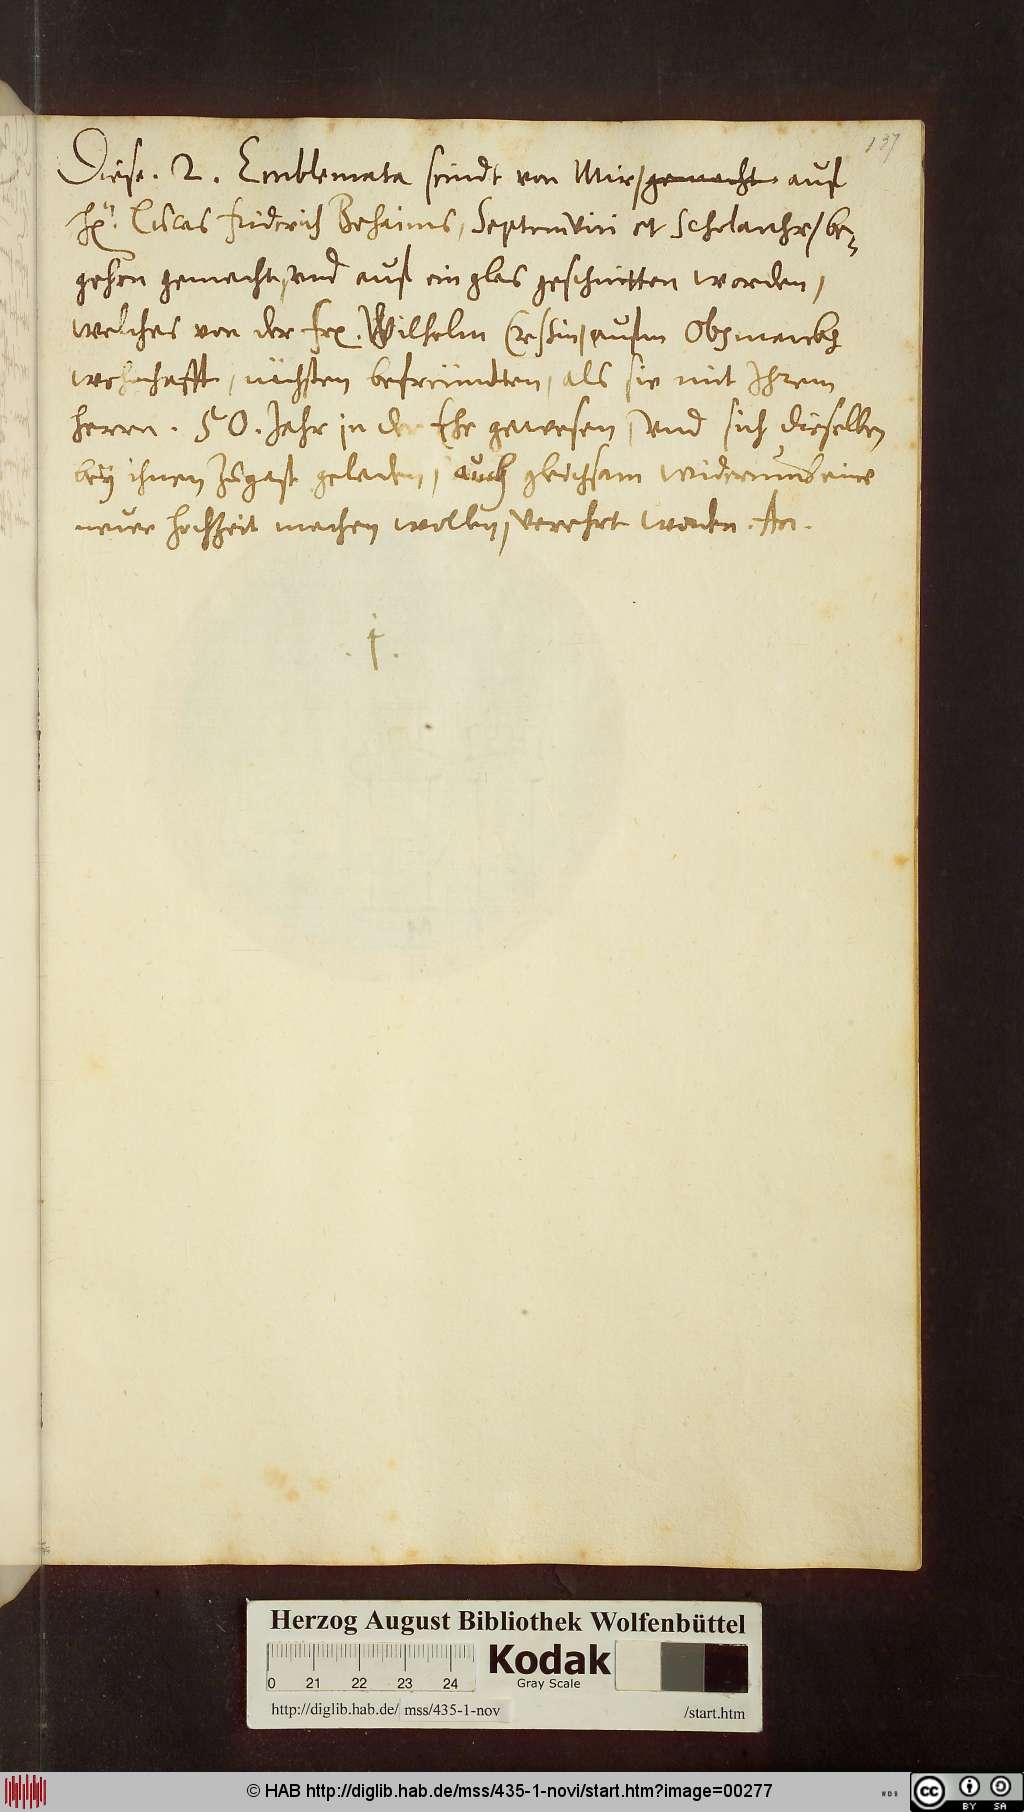 137
Diese. 2. Emblemata seindt von Mir/ gemacht auf
H. Lucas Friderich Behaims, Septemviri et Scholarchr/ be=
gehrn gemacht, vnd auf ein glas geschnitten worden,
welches von der Fr. Wilhelm Creßin, aufm Obsmarckh
wohnhafft, nechsten befreündten, als sie mit Ihrem
Herrn. 50. Jahr in der Ehe gewesen, vnd sich dieselben
bey ihnen zu gast geladen, auch gleichsam widerumb eine
neue hochzeit machen wollen, verehrt worden.
. j .
Herzog August Bibliothek Wolfenbüttel
0 21 22 23 24
Kodak
Gray Scale
http://diglib.hab.de/ mss/435-1-nov /start.htm
© HAB http://diglib.hab.de/mss/435-1-novi/start.htm?image=00277
WDB
cc BY SA